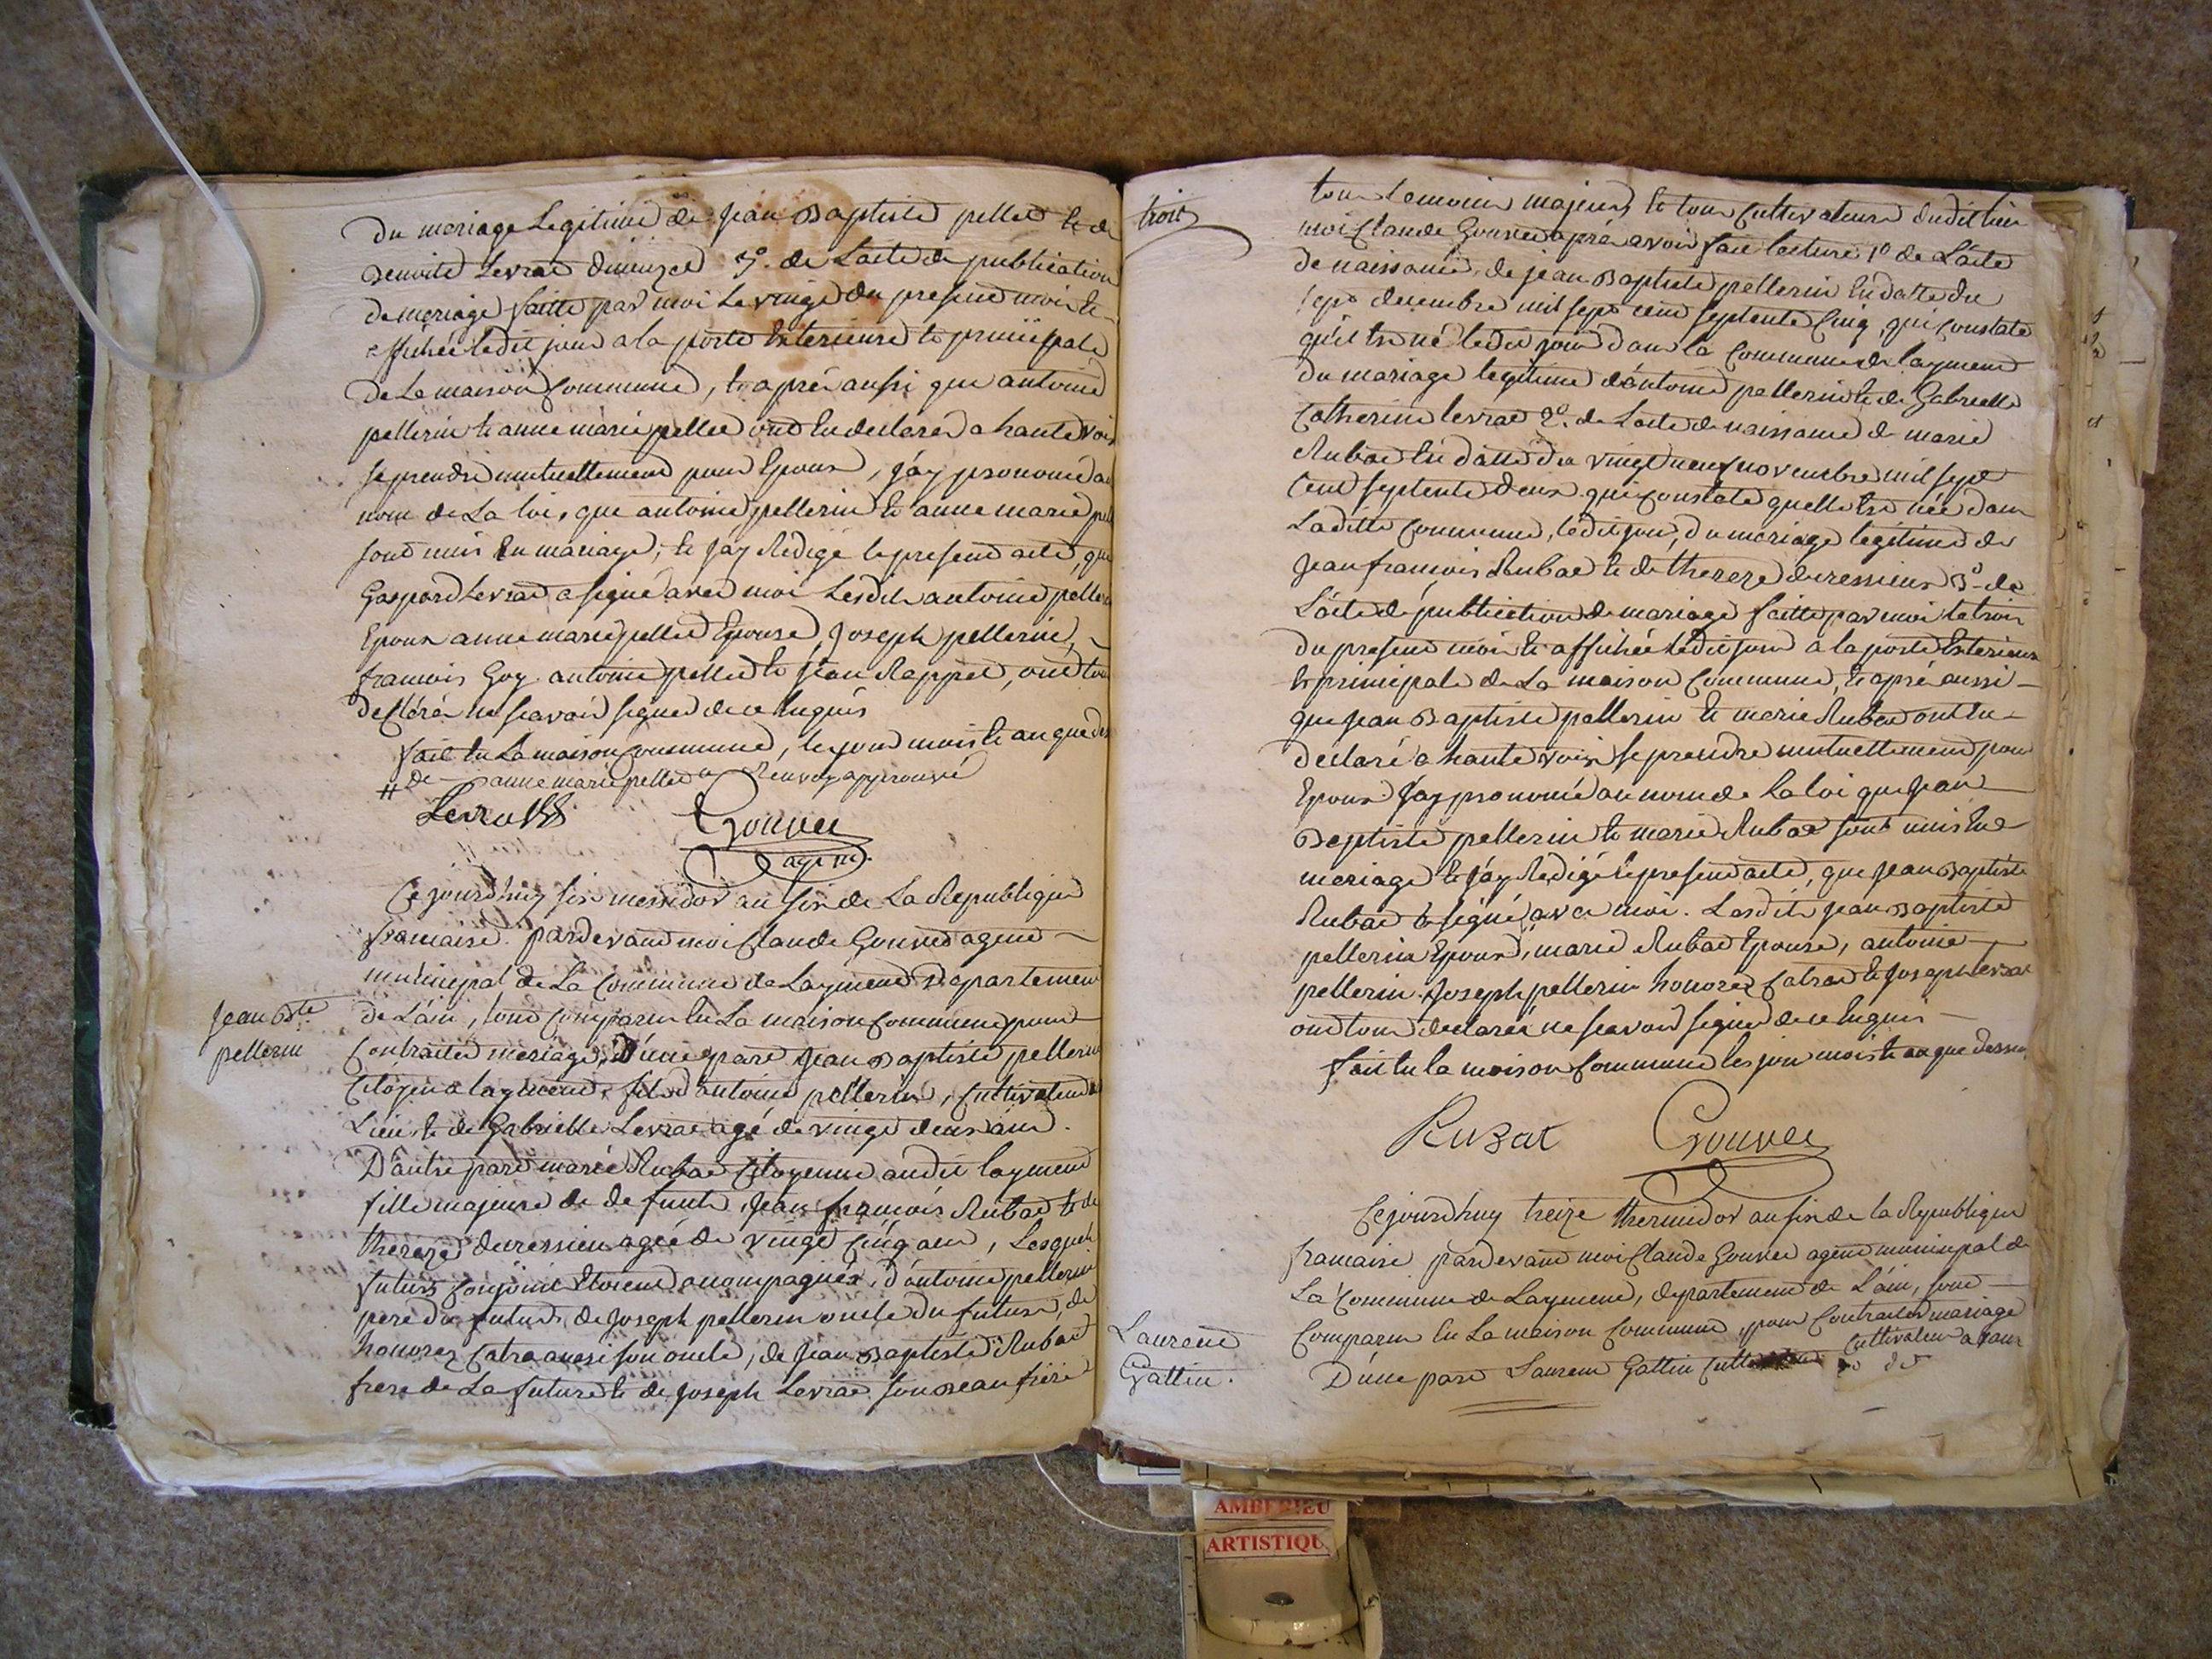 du mariage legitime de jean Baptiste pellet et de
Benoite Levrat 3º. de L'acte de publication
de mariage faitte par moi le vingt du present mois et
affichée ledit jour a la porte Exterieure et principale
de La maison Commune, et aprés aussi que antoine
pellerin et anne marie pellet ont eu declarés a haute voix
se prendre mutuellement pour Epoux, j'ay prononcé au
nom de La loi, que antoine pellerin et anne marie
sont unis En mariage, et j'ay Redigé le present acte, que
Gaspard Levrat a signé avec moi Lesdits antoine pellerin
Epoux anne marie pellet Epouse, Joseph pellerin,
francois Goy antoine pellet et jean Rappet, ont tous
declérés ne scavoir signer de ce Enquis
fait En La maison Commune, les jour mois et an que
# de anne marie pellet Renvoy approuvé
Levrat Gouvee
agent.
Cejourd'huy six messidor an six de La Republique
francaise pardevant moi Claude Gouvee agent
municipal de La Commune de Layment Departement
Jean Bte
pellerin
de L'ain, sont Comparus En La maison Commune pour
Contracter mariage, D'une part Jean Baptiste pellerin
Citoyen a layment, fils d'antoine pellerin, Cultivateur
Lieu et de Gabrielle Levrat agé de vingt deux ans.
D'autre part marie Rubat Citoyenne audit layment
fille majeure de defunts, Jean francois Rubat et de
thereze agée de vingt Cinq ans, Lesquels
futurs Conjoints Etoient accompagnés, d'antoine pellerin
pere du futur, de Joseph pellerin oncle du futur, de
honorez Catra aussi son oncle, de Jean Baptiste Rubat
frere de La future et de Joseph Levrat son Beau frere
trois
tous temoins majeurs, et tous Cultivateurs dudit lieu
moi Claude Gouvee aprés avoir fait lecture 1º de L'acte
de naissance, de jean Baptiste pellerin En datte du
sept decembre mil sept cent septente Cinq, qui Constate
qu'il Est né ledit jour dans la Commune de layment
du mariage legitime d'antoine pellerin et de Gabrielle
Catherine levrat 2º. de L'acte de naissance de marie
Rubat En datte du vingt neuf novembre mil sept
Cent septente deux qui Constate quelle Est née dans
Laditte Commune, ledit jour, du mariage legitime de
Jean francois Rubat et de thereze 3º de
L'acte de publication de mariage faitte par moi le trois
du present mois et affichée ledit jour a la porte Exterieure
et principale de La maison Commune, et aprés aussi
que Jean Baptiste pellerin et marie Rubat ont Eu
declaré a haute voix se prendre mutuellement pour
Epoux J'ay prononcé au nom de La loi que Jean
Baptiste pellerin et marie Rubat sont unis En
mariage et j'ay Redigé le present acte, que Jean Baptiste
Rubat a signé avec moi. Lesdits Jean Baptiste
pellerin Epoux, marie Rubat Epouse, antoine
pellerin Joseph pellerin honorez Catra et Joseph Levrat
ont tous declarés ne scavoir signer de ce Enquis
fait En la maison Commune les jour mois et an que dessus
Rubat Gouvee
Cejourd'huy treize thermidor an six de la Republique
francaise pardevant moi Claude Gouvee agent municipal de
La Commune de Layment, departement de L'ain, sont
Comparus En La maison Commune pour Contracter mariage
Laurent
Gattin.
Cultivateur a
D'une part Laurent Gattin
AMBERIEU
ARTISTIQU